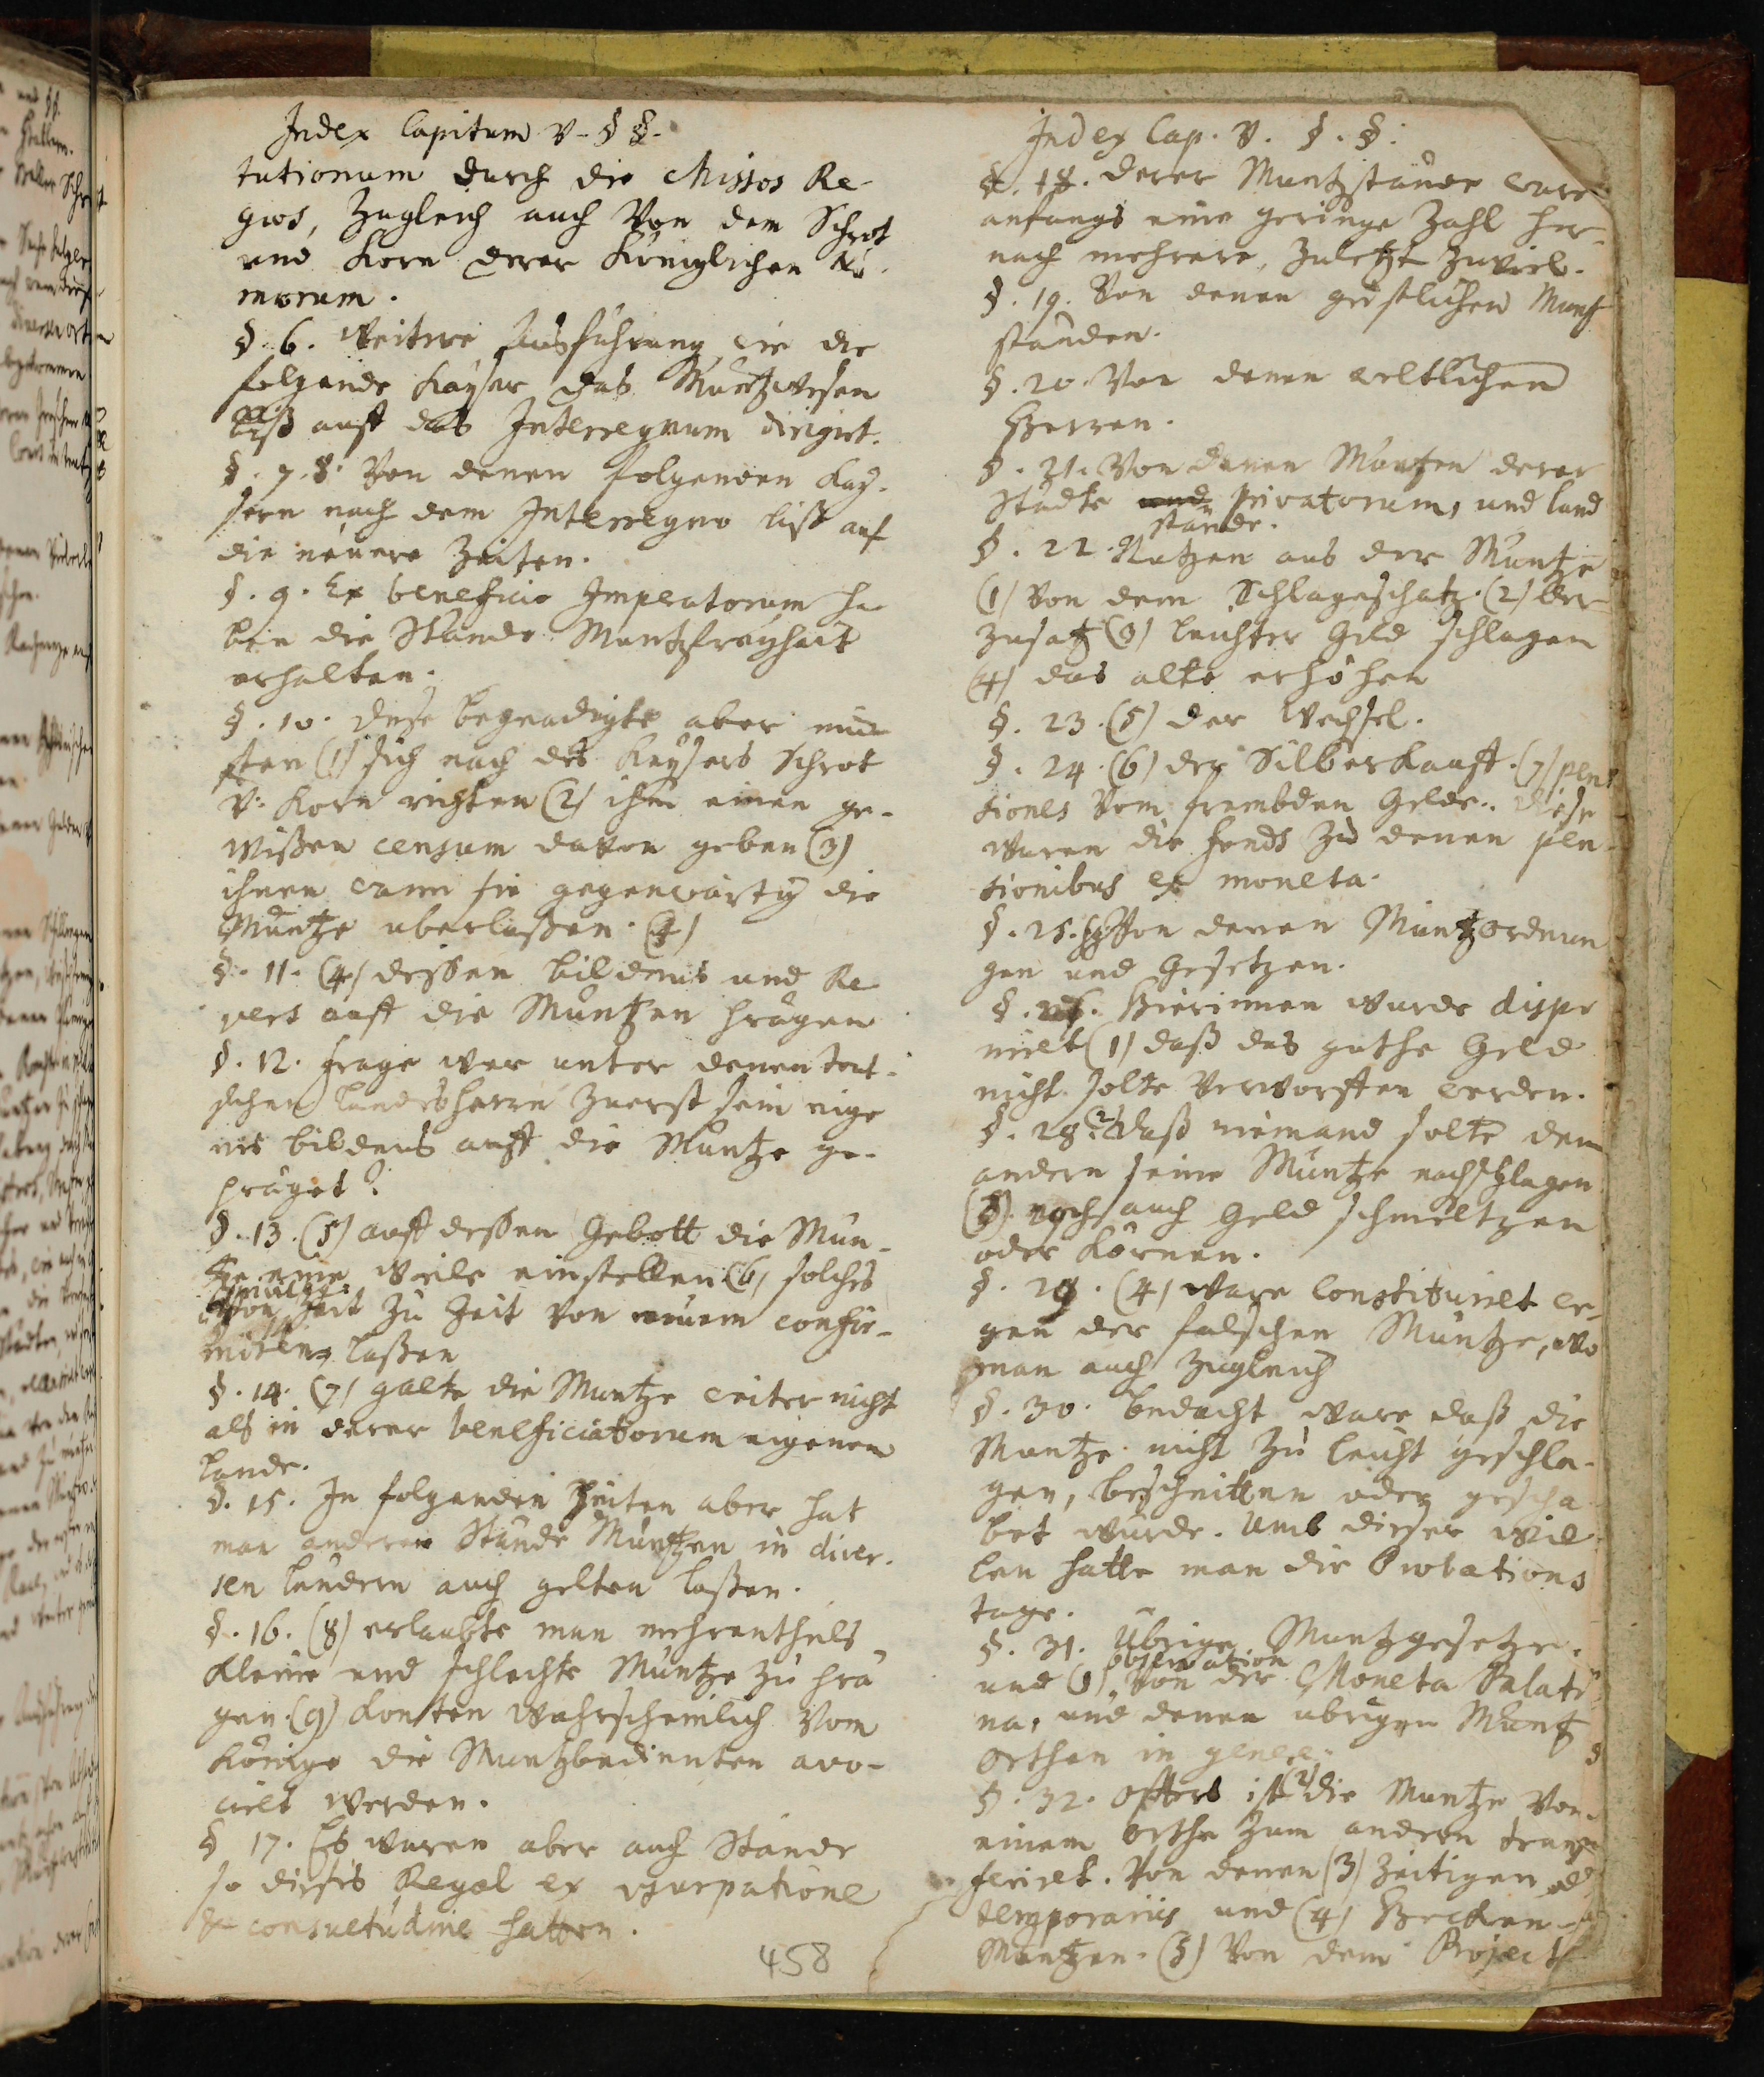 Index Capitum v. § §.
tutionum durch die Missos Re-
gios, zugleich auch von dem Schrot
und Korn derer Königlichen Nu-
morum.
§. 6. Weitere Ausführung wie die
folgende Kayser das Müntzwesen
biß auff das Interregnum dirigirt.
§. 7. 8. Von denen folgenden Kay-
sern nach dem Interregno biß auf
die neuere Zeiten.
§. 9. Ex beneficio Imperatorum ha-
ben die Stände Müntzfreyheit
erhalten.
§. 10. diese begnadigte aber mü-
sten (1) sich nach des Kaysers Schrot
v. Korn richten (2) ihm einen ge-
wißen censum davon geben (3)
ihnen wann sie gegenwärtig die
Müntze uberlaßen.
§. 11. (4) deßen bildnus und Re-
vers auff die Müntzen prägen
§. 12. Frage wer unter denen teut-
schen Landesherrn zuerst sein eige-
nes bildnus auff die Müntze ge-
präget?
§. 13. (5) auff deßen Gebott die Mün-
tze eine Weile einstellen (6) solches
von Zeit zu Zeit von neuem confir-
miren laßen
§. 14. (7) galte die Müntze weiter nicht
als in derer beneficiatorum eigenem
Lande.
§. 15. In folgenden Zeiten aber hat
man anderer Stände Müntzen in diver-
sen Ländern auch gelten laßen.
§. 16. (8) erlaubte man mehrentheils
kleine und schlechte Müntze zu prä
gen. (9) konten wahrscheinlich vom
Könige die Müntzbedienten avo-
cirt werden.
§ 17. Es waren aber auch Stände
so dieses Regal ex usurpatione
& consuetudine hatten.
458
Index Cap. v. §. §.
§. 18. derer Müntzstände ware
anfangs eine geringe Zahl her-
nach mehrere, zuletzt zuviel.
§. 19. Von denen geistlichen Müntz
ständen.
§. 20. Von denen weltlichen
Herren.
§. 21. Von denen Müntzen derer
Städte und privatorum, und Land
stände.
§. 22. Nutzen aus der Müntze
(1) von dem Schlageschatz. (2) der
Zusatz (3) leichter Geld schlagen
(4) das alte erhöhen
§. 23. (5) der Wechsel.
§. 24. (6) der Silberkauff. (7) pen
siones vom frembden Gelde. diese
waren die fonds zu denen pen-
sionibus ex moneta.
§. 25. Von denen Müntzordnun
gen und Gesetzen.
§. 26. Hierinnen wurde dispo
nirt (1) daß das guthe Geld
nicht solte verworffen werden.
§. 28. (2) daß niemand solte dem
andern seine Müntze nachschlagen
(3) noch auch Geld schmeltzen
oder körnen.
§. 29. (4) ware constituiret we-
gen der falschen Müntze, wo
man auch zugleich
§. 30. bedacht ware daß die
Müntze nicht zu leicht geschla-
gen, beschnitten oder gescha-
bet würde. Umb dieser wil-
len hatte man die Probations
tage.
§. 31. Übrige Müntzgesetze.
observation
und (1) von der Moneta Palati
na, und denen übrigen Müntz
orthen in genere
§. 32. öffters ist (2) die Müntze von
einem orthe zum andern trans
feriret. Von denen (3) zeitigen
temporariis und (4) Hecken-
Müntzen. (5) Von dem Project